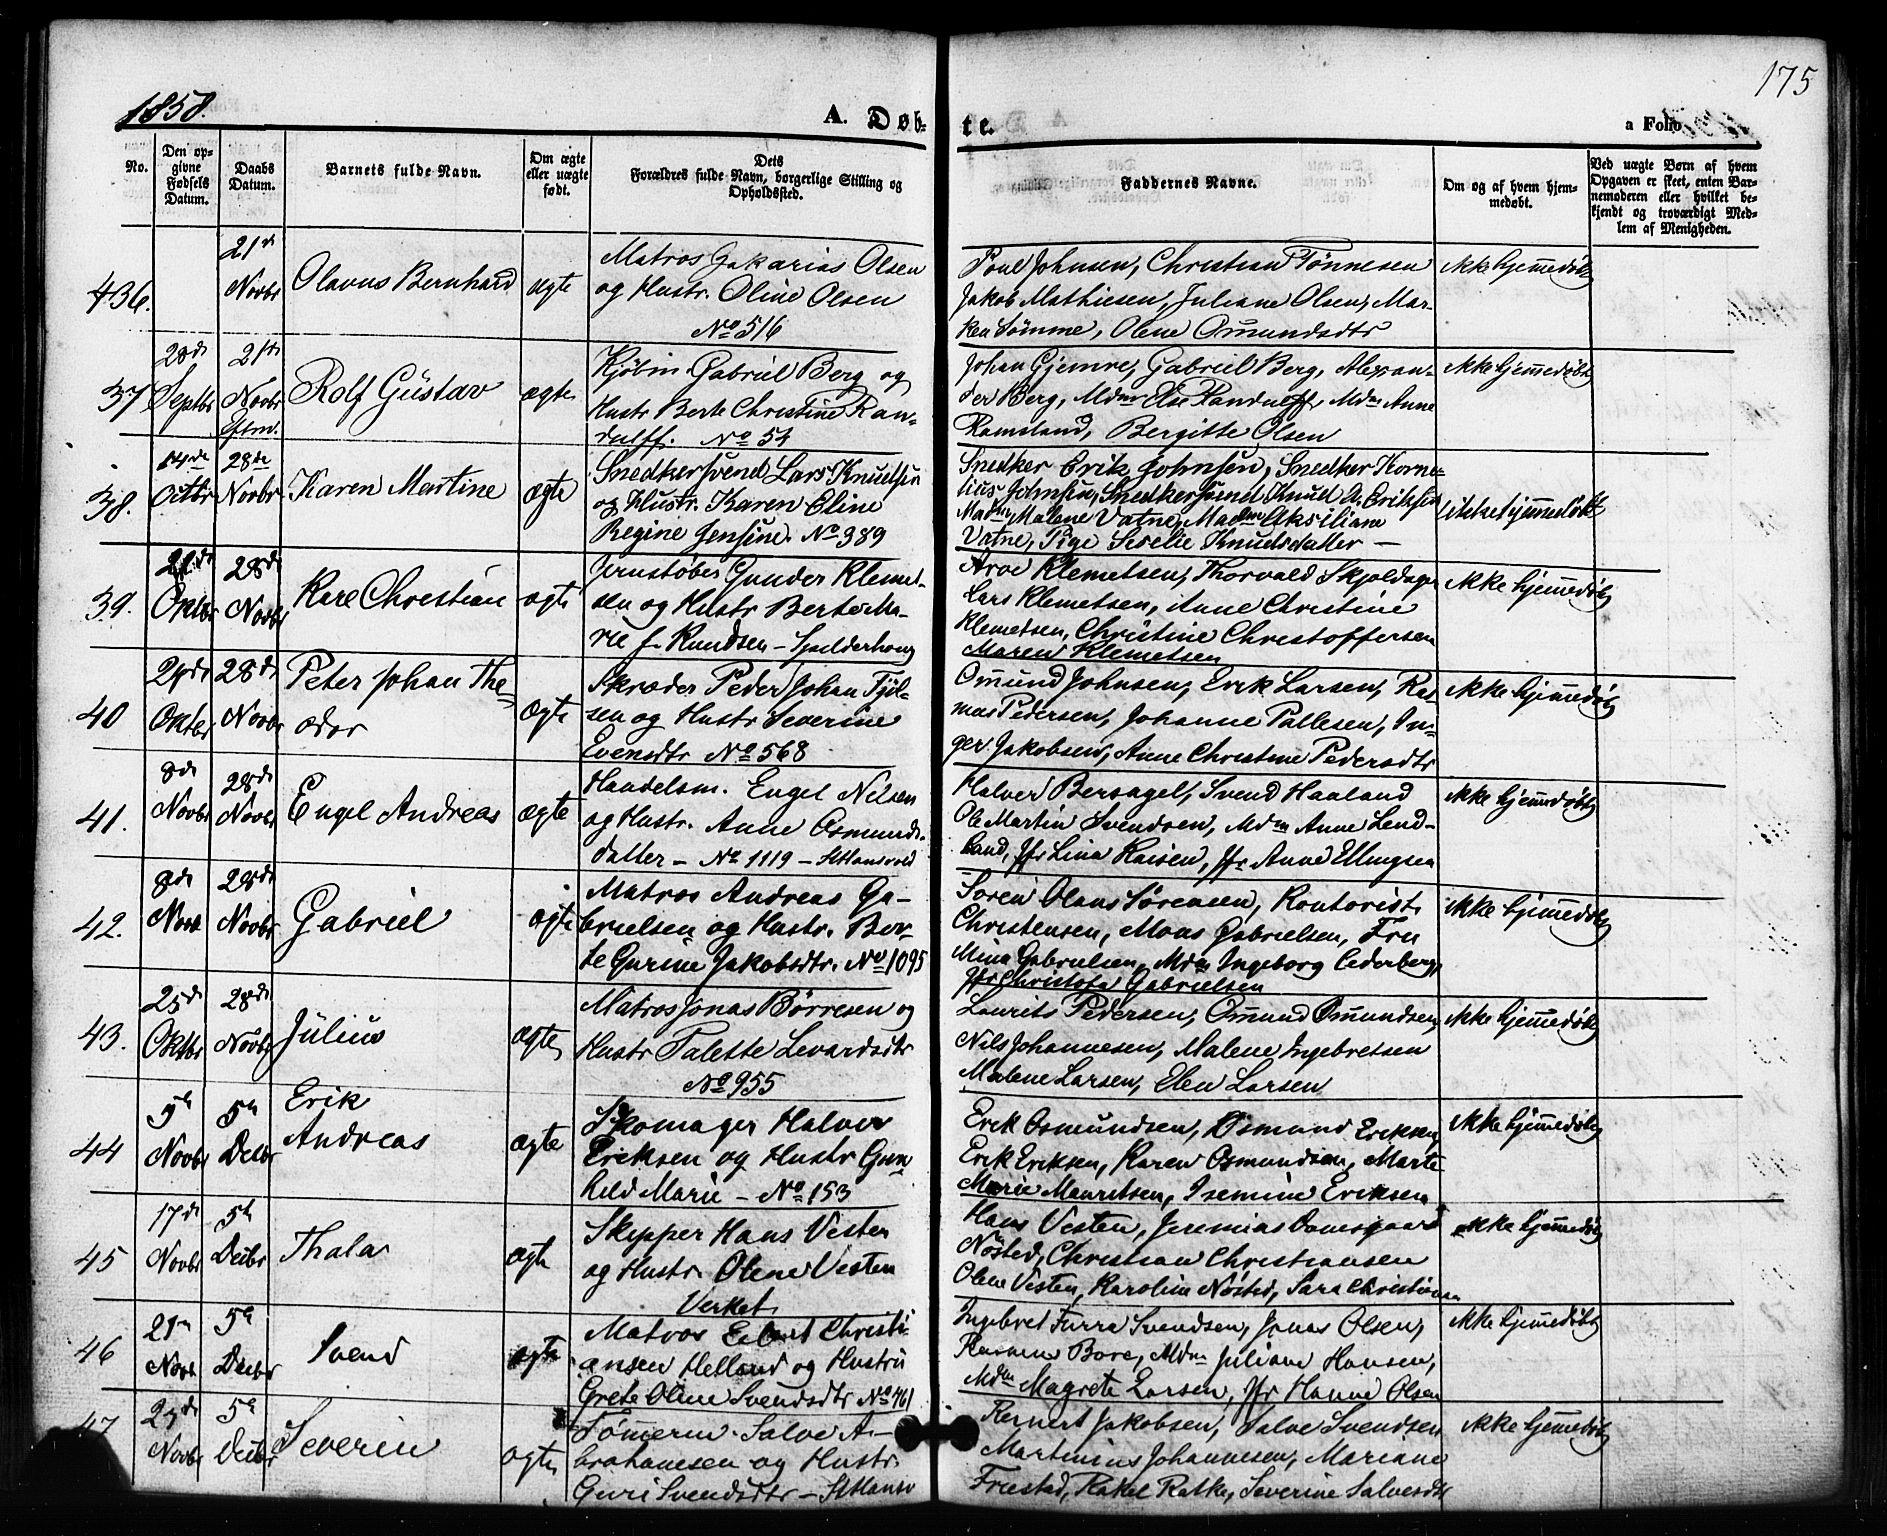 175
1858.
A. Døb-
te.
a Folio
No.
Den op-
givne
Fødsels
Datum.
Daabs
Datum.
Barnets fulde Navn.
Om ægte
eller uægte
født.
Dets
Forældres fulde Navn, borgerlige Stilling og
Opholdssted.
Faddernes Navne.
Om og af hvem hjem-
medøbt.
Ved uægte Børn af hvem
Opgaven er skeet, enten Bar-
nemoderen eller hvilket be-
kjendt og troværdigt Med-
lem af Menigheden.
436.
21de
Novbr
Olavus Bernhard
ægte
Matros Zakarias Olsen
og Hustr. Oline Olsen
No 516
Poul Johnsen, Christian Tönnesen
Jakob Mathiesen, Juliane Olsen, Mar-
ken Sömme, Olene Omundsdtr
ikke hjemmedøbt
37
28de
Septbr
21de
Novbr
Eftm.
Rolf Gustav
ægte
Kjöbm. Gabriel Berg og
Hustr Berte Christine Ran-
dulff. No 54
Johan Gjemre, Gabriel Berg, Alexan-
der Berg, Mdm Else Randulff, Mdm Anne
Ramsland, Bergitte Olsen
ikke hjemmedøbt
38.
14de
Octbr
28de
Novbr
Karen Martine
ægte
Snedkersvend Lars Knudsen
og Hustr. Karen Eline
Regine Jensine. No 389
Snedker Erik Johnsen, Snedker Korne-
lius Johnsen, Snedkersvend Knud A. Eriksen
Madm Malene Vatne, Madme
Vatne, Pige Serelie Knudsdatter —
ikke hjemmedöbt
39.
Oktbr
28de
Novbr
Kare Christian
ægte
Jernstöber Gunder Klemet-
sen og Hustr Berte Ma-
rie f. Knudsen –
Arve Klemetsen, Thorvald Skjoldager
Lars Klemetsen, Anne Christine
Klemetsen, Christine Christoffersen
Maren Klemetsen
ikke hjemmedøbt
40
24de
Oktbr
28de
Novbr
Peter Johan The-
odor
ægte
Skræder Peder Johan Fjöl-
sen og Hustr Severine
Evensdtr No 568
Omund Johnsen, Erik Larsen, Ras-
mus Pedersen, Johanne Pallesen, In-
ger Jakobsen, Anne Christine Pedersdtr
ikke hjemmedøbt
41.
8de
Novbr
28de
Novbr
Engel Andreas
ægte
Handelsm. Engel Nilsen
og Hustr. Anne Osmunds-
datter – No 1119 – StHansvold
Halver Bersagel, Svend Haaland
Ole Martin Svendsen, Mdm Anne Lend-
land, Jfr Lina Hansen, Jfr Anne Ellingsen
ikke hjemmedøbt
42.
8de
Novb
28de
Novbr
Gabriel
ægte
Matros Andreas Ga-
brielsen og Hustr. Ber-
te Gurine Jakobsdtr. No 1095
Sören Olaus Sörensen, Kontorist
Christensen, Mons Gabrielsen, Fru
Mina Gabrielsen, Mdm Ingeborg Cederberg,
Jfr Christofa Gabrielsen
ikke hjemmedøbt
43.
25de
Oktbr
28de
Novbr
Julius
ægte
Matros Jonas Börresen og
Hustr Talette Levardsdtr
No 955
Laurits Pedersen, Omund Omundsen,
Nils Johannesen, Malene Ingebretsen
Malene Larsen, Elen Larsen
ikke hjemmedøbt
44
5te
Novbr
5te
Decbr
Erik
Andreas
ægte
Skomager Halver
Eriksen og Hustr Gun-
hild Marie – No 153
Erik Osmundsen, Osmund Eriksen,
Erik Eriksen, Karen Osmundsen, Marte
Marie Mauritsen, Isemine Eriksen
ikke hjemmedøbt
45
17de
Novbr
5te
Decbr
Thala
ægte
Skipper Hans Vesten
og Hustr. Olene Vesten
Verket
Hans Vesten, Jeremias Domsgaard
Nösted, Christian Christiansen
Olene Vesten, Karoline Nösted, Sara Christiansen
ikke hjemmedøbt
46
21de
Novb
5te
Decbr
Svend
ægte
Matros Christi-
ansen Helland og Hustru
Grete Oline Svendsdtr No 461
Ingebret Furra Svendsen, Jonas Olsen,
Rasmus Bore, Mdm Juliane Hansen,
Mdm Magrete Larsen, Jfr Hanne Olsen
ikke hjemmedøbt
47
Novbr
5te
Decbr
Severin
ægte
Tömmerm. Salve A-
brahamsen og Hustr.
Guri Svendsdtr – StHansv
Reinert Jakobsen, Salve Svendsen
Martinius Johannesen, Mariane
Friestad, Rakel Ratke, Severine Salvesdtr
ikke hjemmedøbt